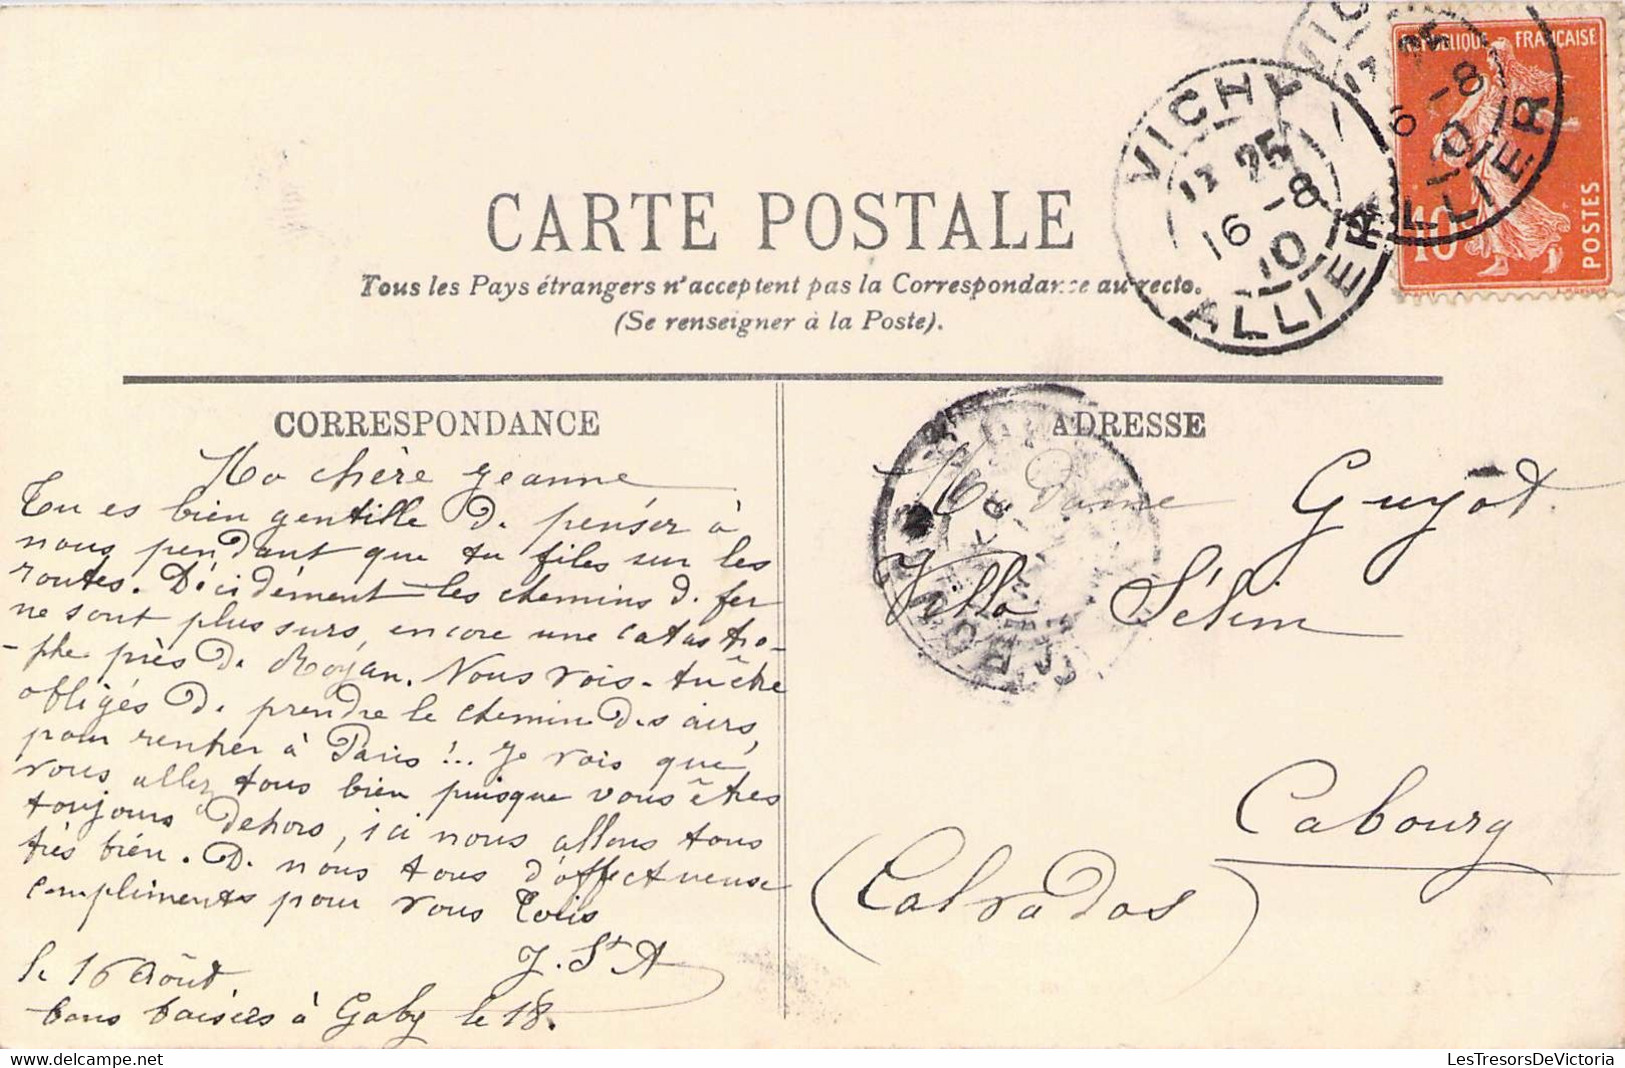 CARTE POSTALE
Tous les Pays étrangers n'acceptent pas la Correspondance au recto.
(Se renseigner à la Poste).
VICHY
17 25
16 -8
10
ALLIER
VIC
17 25
6 -8
10
ALLIER
REPUBLIQUE FRANÇAISE
10
POSTES
CORRESPONDANCE
Ma chère Jeanne
Tu es bien gentille de penser à
nous pendant que tu files sur les
routes. Décidément les chemins de fer
ne sont plus surs, encore une catastro-
-phe près de Royan. Nous vois-tu être
obligés de prendre le chemin des airs,
pour rentrer à Paris !.. Je vois que
vous allez tous bien puisque vous êtes
toujours dehors, ici nous allons tous
très bien. De nous tous d'affectueuse
compliments pour vous Tous
J. St A
le 16 Août.
bons baisers à Gaby le 18.
ADRESSE
Madame Guyot
Villa Sélim
Cabourg
(Calvados)
LesTresorsDeVictoria